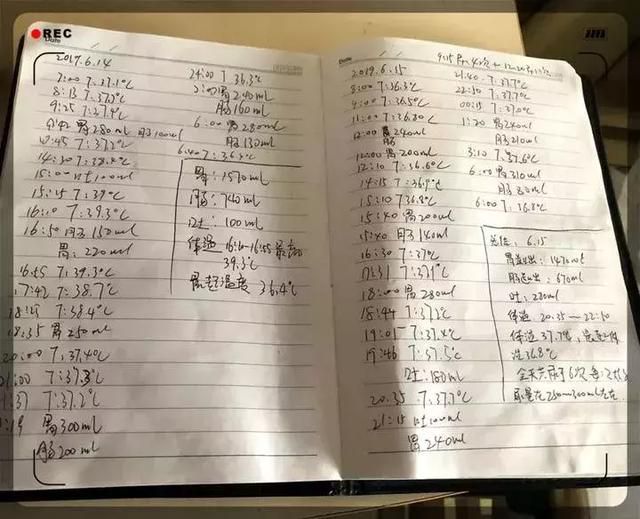 REC
Date
2019.6.14
7:00 T:37.1℃
8:13 T:37.2℃
9:25 T:37.4℃
胃280ml 肠100ml
14:30 T:38.2℃
15:00 吐100ml
15:15 T:39℃
16:10 T:39.3℃
16:50 肠150ml
胃:220ml
16:55 T:39.3℃
17:42 T:38.7℃
T:38.4℃
18:35 胃250ml
20:00 T:37.4℃
21:00 T:37.3℃
T:37.2℃
胃300ml
肠200ml
24:00 T 36.3℃
2:00 胃240ml
肠160ml
6:00 胃280ml
肠130ml
6:40 T:36.3℃
胃:1570ml
肠:740ml
吐:100ml
体温 16:10-16:55 最高
39.3℃
温度 36.4℃
Date
2019.6.15
8:00 T:36.3℃
9:00 T:36.5℃
11:00 T:36.8℃
12:00 胃240ml
肠
12:00 胃200ml
12:10 T:36.6℃
14:15 T:36.9℃
15:10 T36.8℃
15:40 胃200ml
15:40 肠140ml
16:30 T:37℃
17:31 T:37.1℃
18:00 胃280ml
18:44 T:37.2℃
19:01 T:37.4℃
19:46 T:37.5℃
吐:180ml
20:35 T:37.7℃
21:15 吐100ml
胃240ml
21:40 T:37.7℃
22:10 T:37.7℃
00:15 T:37.0℃
1:20 胃240ml
肠210ml
3:10 T:37.6℃
6:00 胃310ml
6:00 T:36.8℃
总结: 6.15
胃总出:1470ml
肠总出:670ml
吐:280ml
体温:20:35—22:10
体温37.7℃,最低体
温36.8℃
尿量在250ml-300ml左右